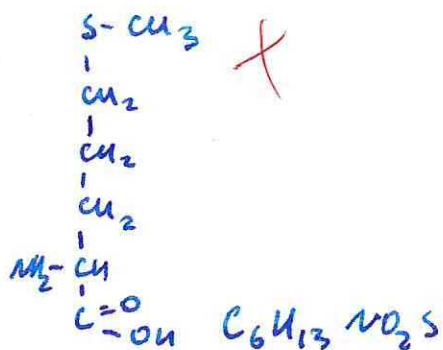 S-CH3
CH2
CH2
CH2
NH2-CH
C=O
-OH C6H13NO2S